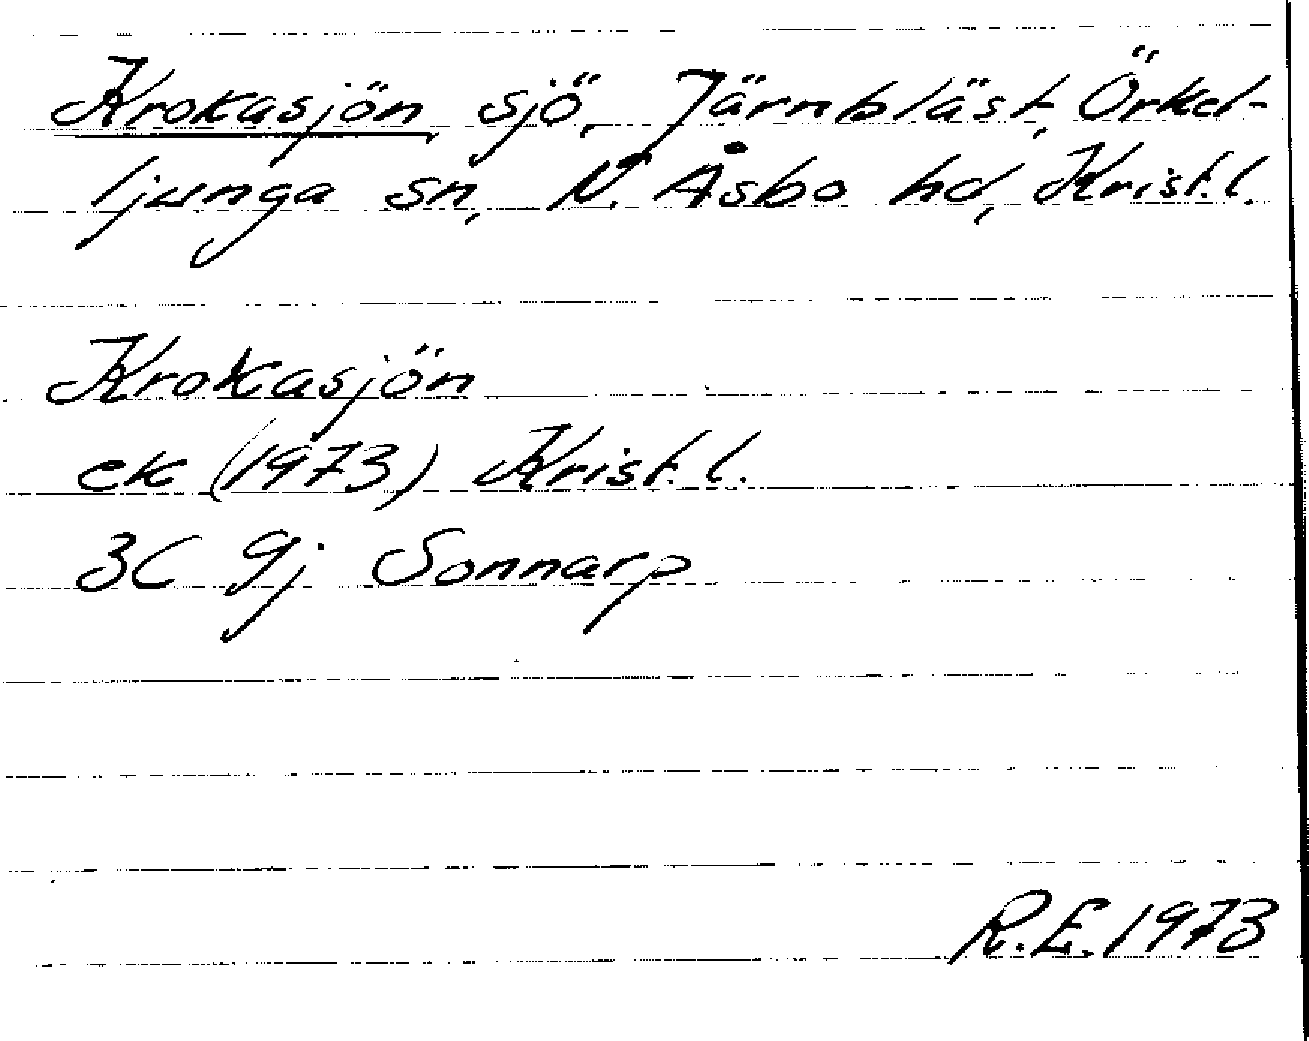 Krokasjön, sjö, Järnbläst, Örkel-
ljunga sn, N. Åsbo hd, Krist.l.
Krokasjön
ek (1973) Krist.l.
3C 9j Sonnarp
R.E. 1973